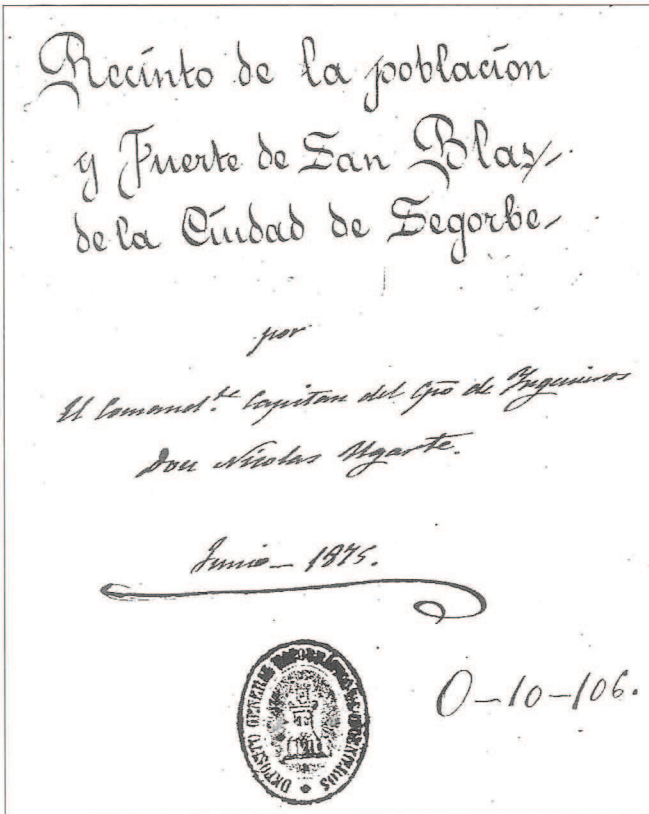 Recinto de la poblacion
y Fuerte de San Blas,
de la Ciudad de Segorbe,
por
El Comand.te Capitan del Cpo de Ingenieros
Don Nicolas Ugarte.
Junio - 1875.
DEPOSITO GENERAL TOPOGRÁFICO DE INGENIEROS
O-10-106.